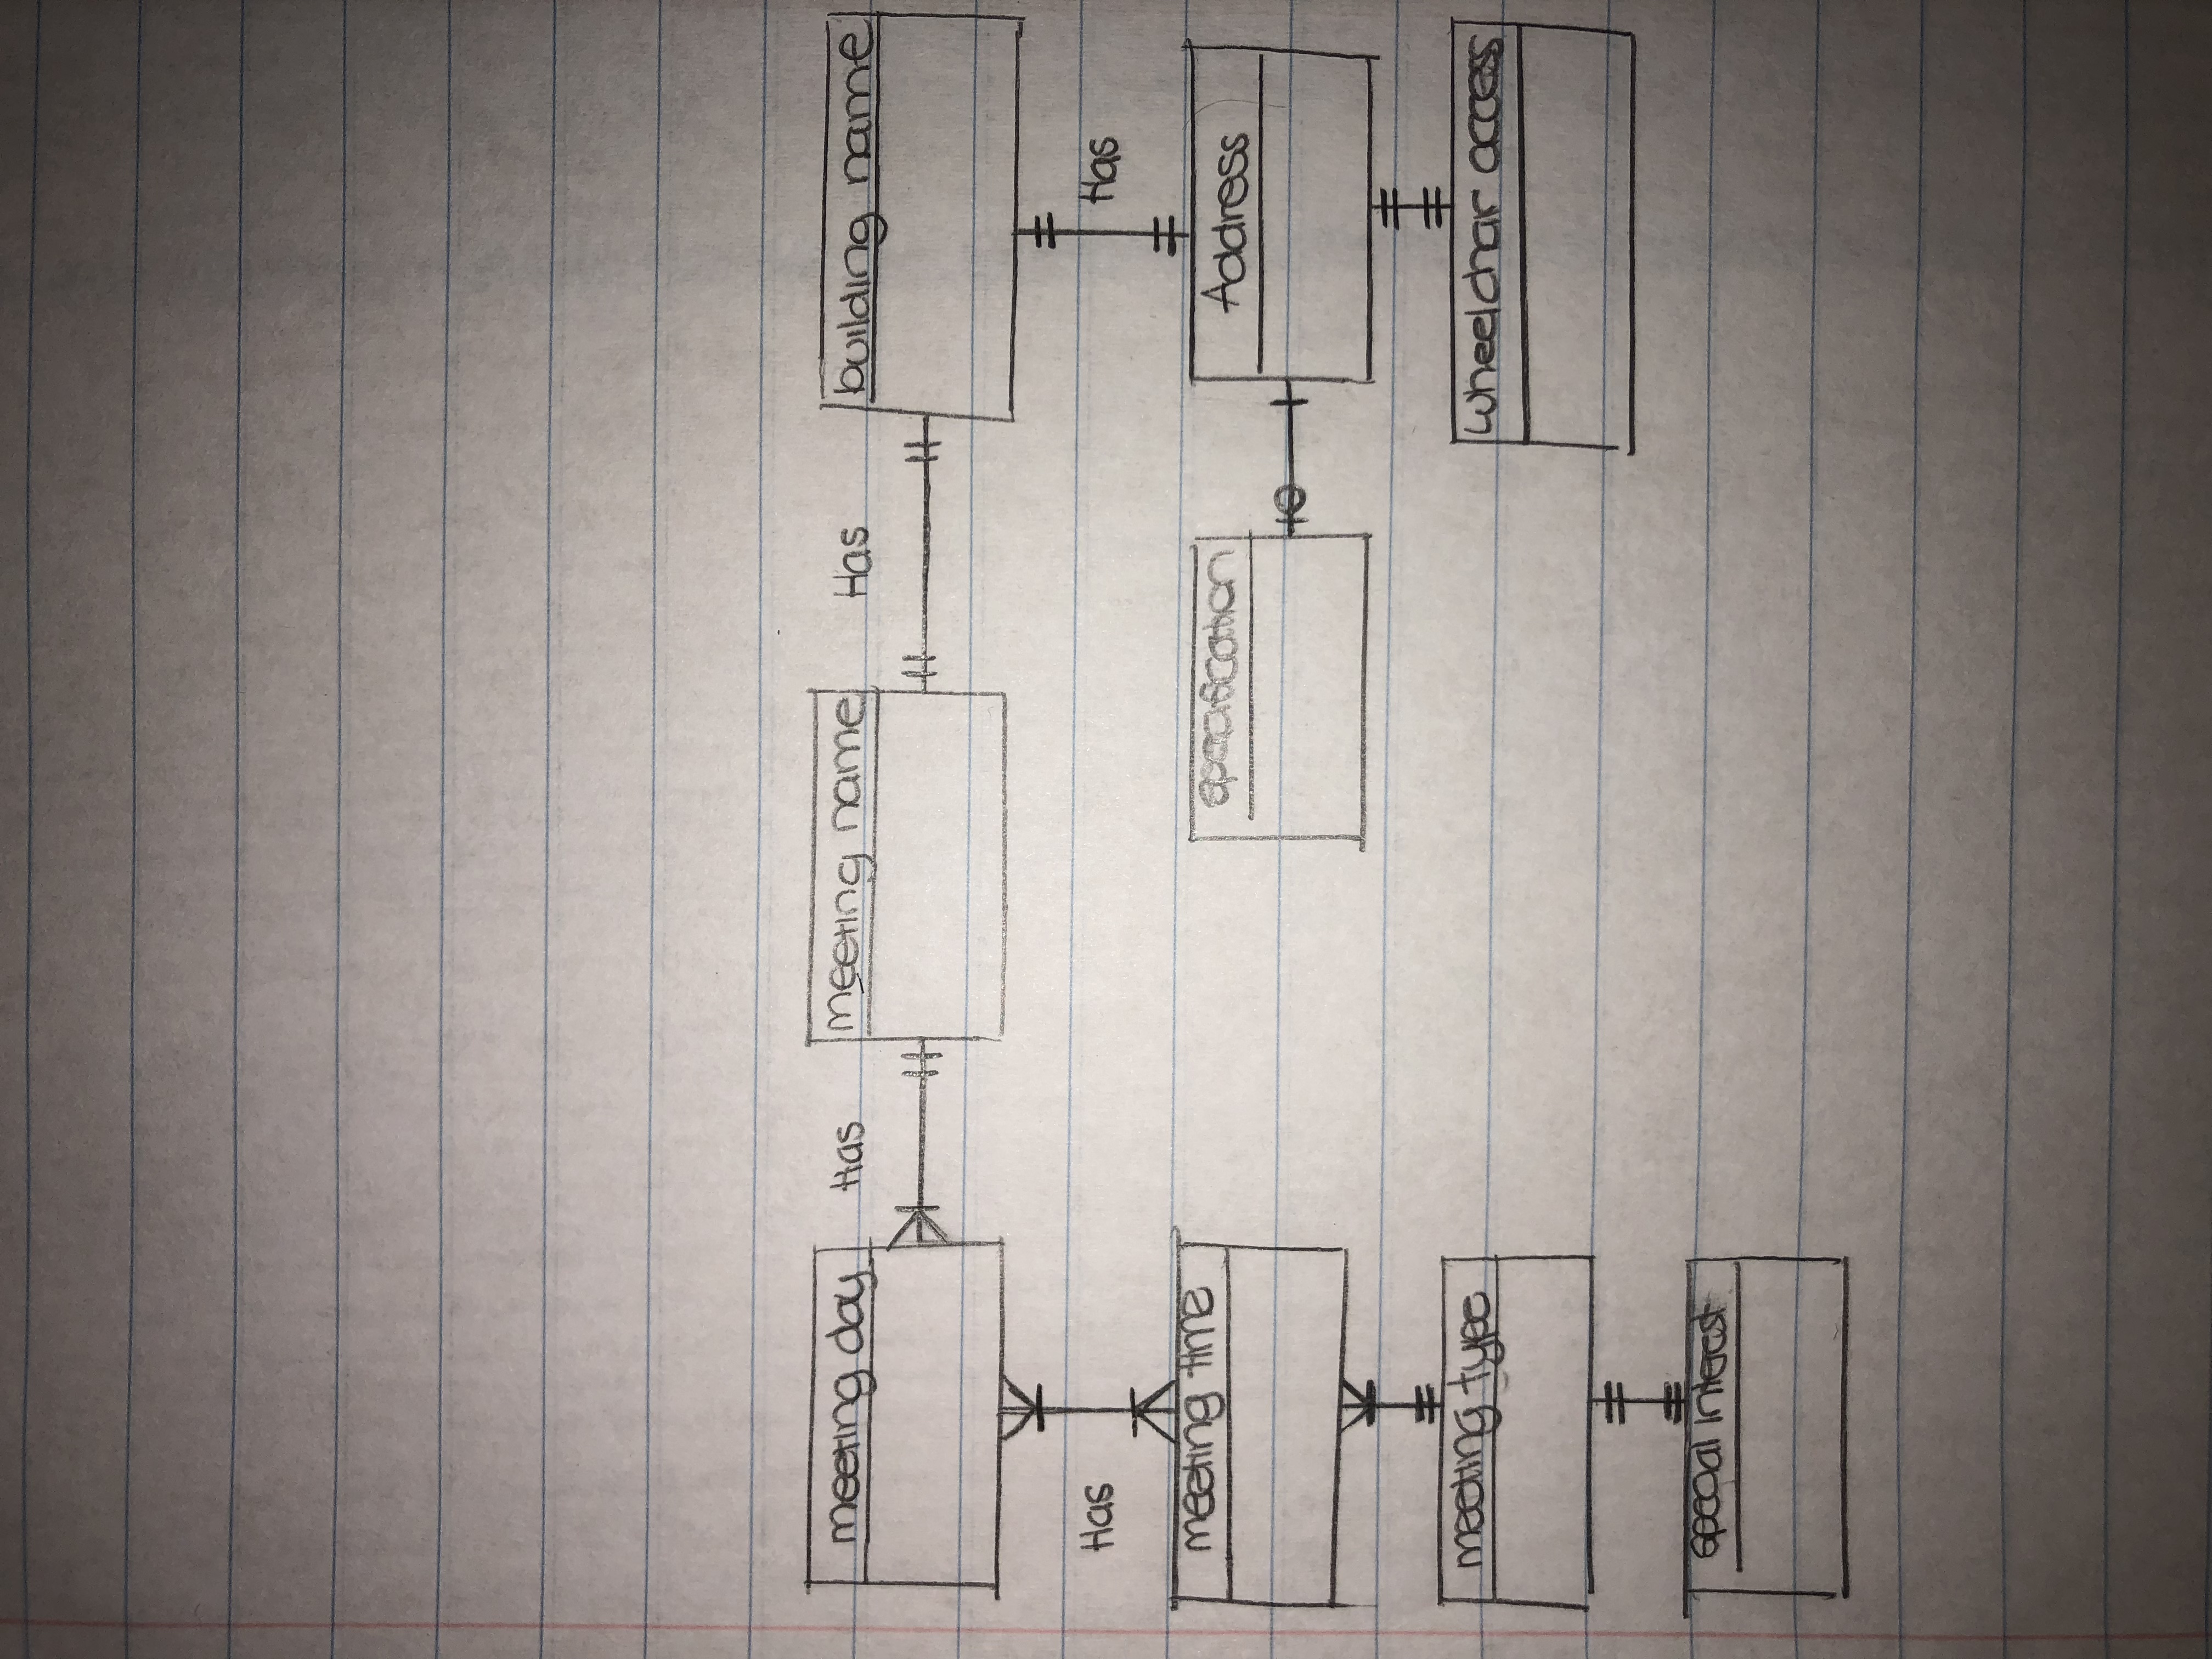 meeting day
Has
meeting name
Has
building name
Has
Has
meeting time
specification
Address
meeting type
wheelchar access
special interest